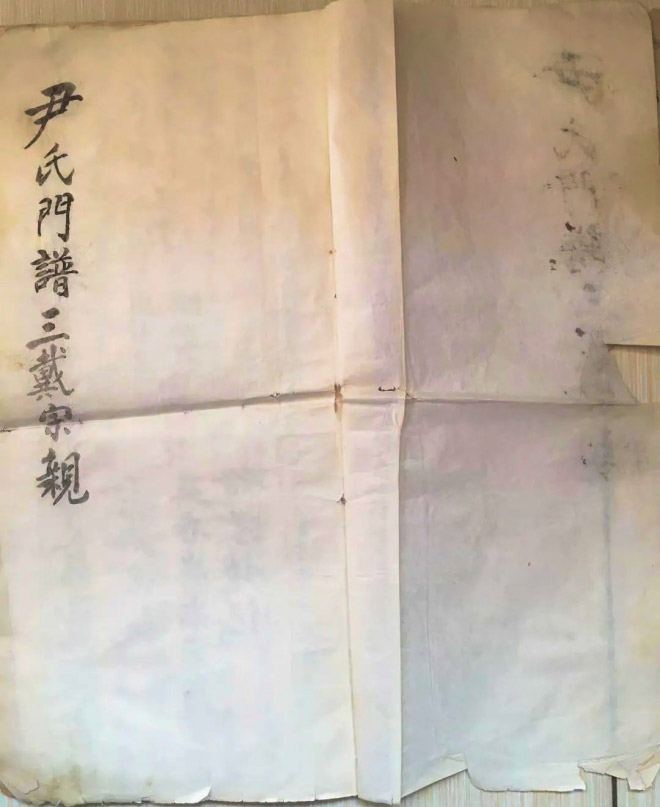 尹氏門譜三戴宗親